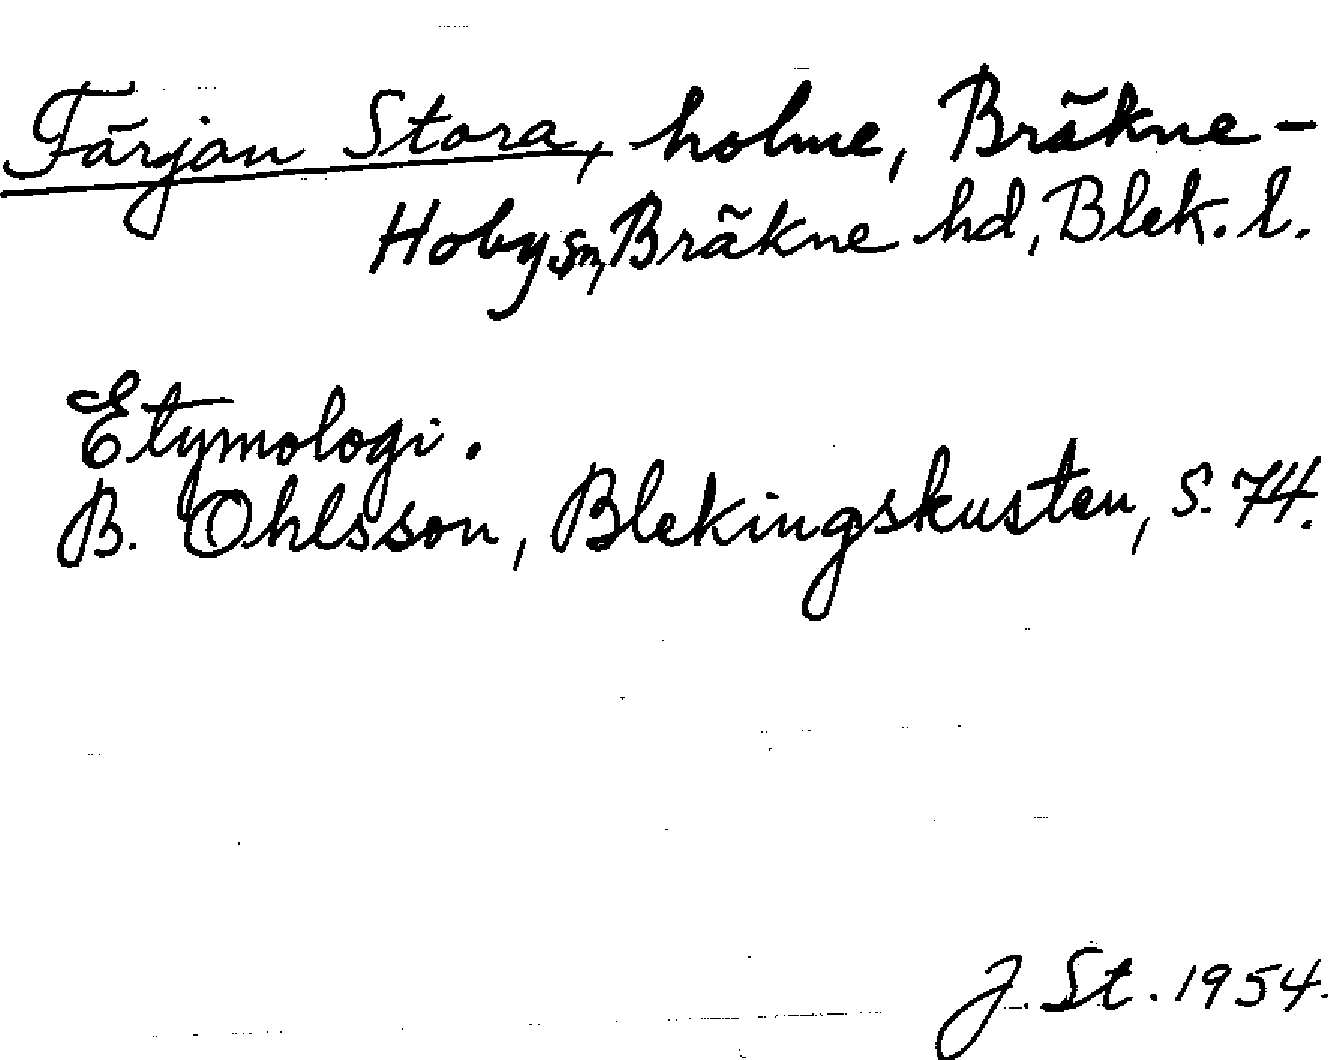 Färjan Stora, holme, Bräkne-
Hoby sn, Bräkne hd, Blek. l.
Etymologi.
B. Ohlsson, Blekingskusten, s. 74.
J. St. 1954.